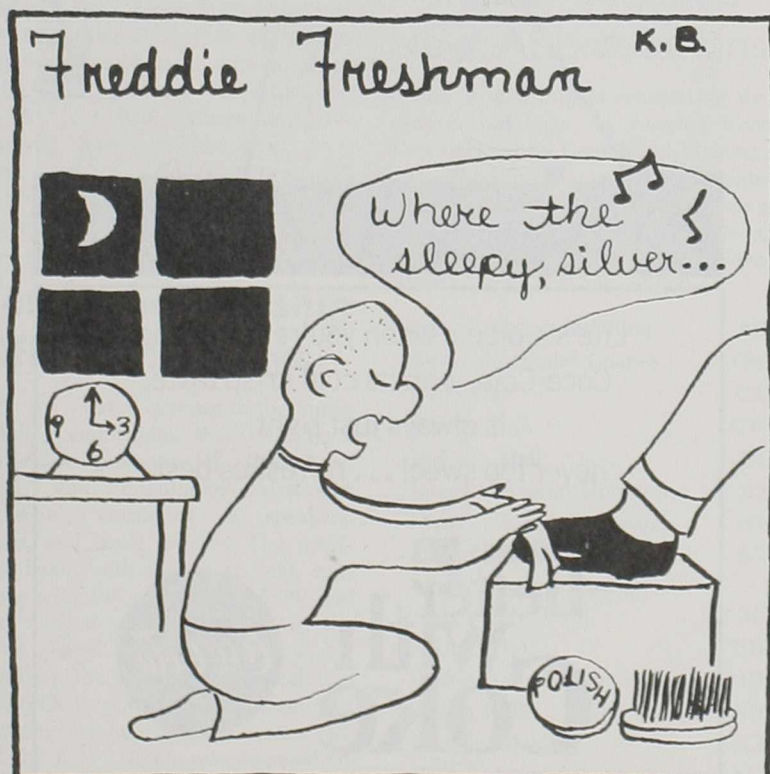 Freddie Freshman
K.B.
Where the
sleepy, silver...
9 3
6
POLISH